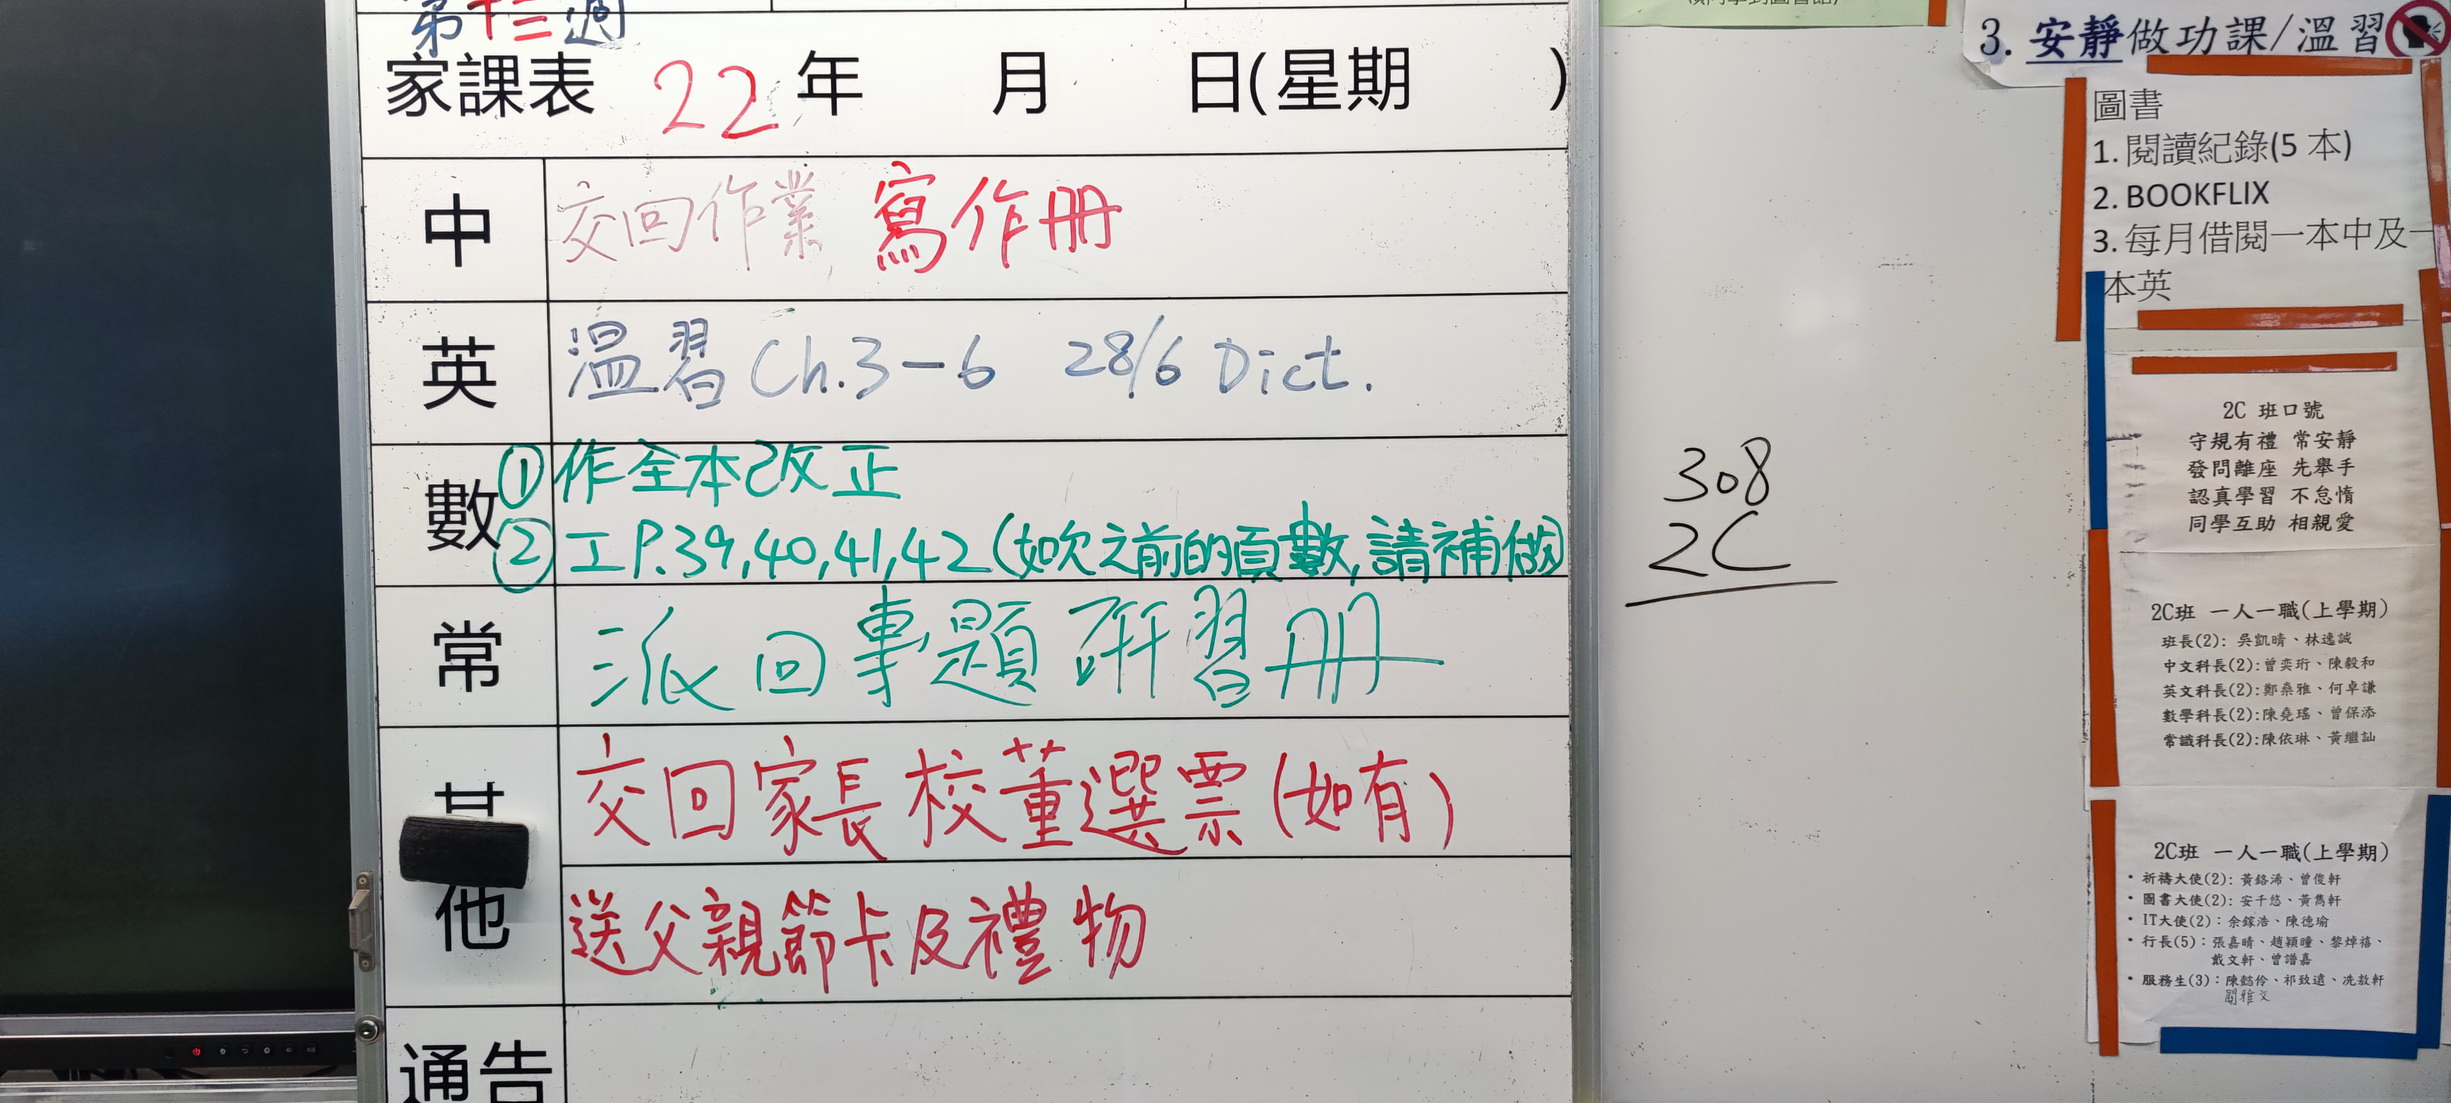 第十三週
家課表 22 年 月 日(星期 )
中 交回作業 寫作冊
英 温習 Ch.3-6 28/6 Dict.
數 ① 作全本改正
② 工 P.39,40,41,42 (如欠之前的頁數,請補做)
常 派回專題研習冊
其他 交回家長校董選票(如有)
送父親節卡及禮物
通告
308
2C
3. 安靜做功課/溫習
圖書
1. 閱讀紀錄(5 本)
2. BOOKFLIX
3. 每月借閱一本中及一
本英
2C 班口號
守規有禮 常安靜
發問離座 先舉手
認真學習 不怠惰
同學互助 相親愛
2C班 一人一職(上學期)
班長(2): 吳凱晴、林逸誠
中文科長(2):曾奕珩、陳毅和
英文科長(2):鄭桑雅、何卓謙
數學科長(2):陳堯瑤、曾保添
常識科長(2):陳依琳、黃繼訕
2C班 一人一職(上學期)
• 祈禱大使(2): 黃鉻浠、曾俊軒
• 圖書大使(2): 安千悠、黃雋軒
• IT大使(2)：余鎵浩、陳德瑜
• 行長(5)：張嘉晴、趙穎曈、黎焯禧、
戴文軒、曾譜嘉
• 服務生(3)：陳懿伶、祁致遠、冼敖軒